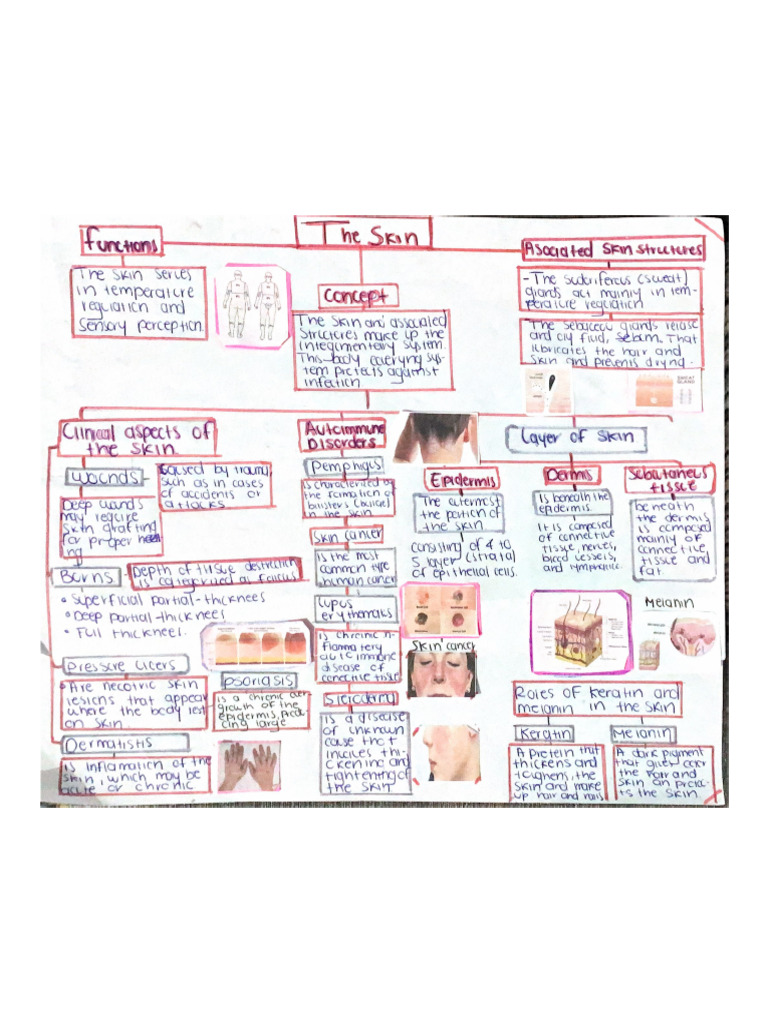 The Skin
Functions
The Skin serves
in temperature
regulation and
sensory perception.
Concept
The skin and associated
structures make up the
integumentary system.
This body covering sys-
tem protects against
infection
Asociated Skin structures
- The Sudoriferous (sweat)
glands act mainly in tem-
perature regulation
The Sebaceou glands relase
and oily fluid, Sebum. That
lubricates the hair and
Skin and prevents drying.
SWEAT
GLAND
Clinical aspects of
the skin
Wounds
Caused by trauma,
such as in cases
of accidents or
attacks.
Deep wounds
may require
Skin grafting
for proper heali
ng
Borns
Depth of tissue destruction
is categorized as follows
• Superficial partial-thicknees
• Deep partial-thicknees
• Full thickneel.
Pressure Ulcers
• Are necotric skin
lesions that appear
where the body rest
on skin.
Dermatistis
is inflamation of the
skin, which may be
acute or chronic
psoriasis
is a chronic over
growth of the
epidermis, produ
cing large
Autoimmune
Disorders
Pemphigus
is characterized by
the formation of
in the skin
Skin cancer
is the most
common type
human cancer
Lupus
erythomatos
is chronic in-
flammatory
autoimmune
disease of
conective tisue
Scleroderma
is a disease
of unknown
cause that
involves thi-
ckening and
tightening of
the skin
Layer of Skin
Epidermis
The outermost
the portion of
the skin
consisting of 4 to
5 layer (strata)
of epithelial cells.
Skin cancer
Dermis
Is beneath the
epidermis.
it is composed
of connective
tissue, nerves,
blood vessels,
and lymphatic.
Subcutaneus
tissue
beneath
the dermis
is composed
mainly of
connective,
tissue and
fat
Melanin
Roles of Keratin and
melanin in the skin
Keratin
A protein that
thickens and
toughens, the
skin and make
up hair and nails.
Melanin
A dark pigment
that gives color
the hair and
Skin an protec-
ts the skin.